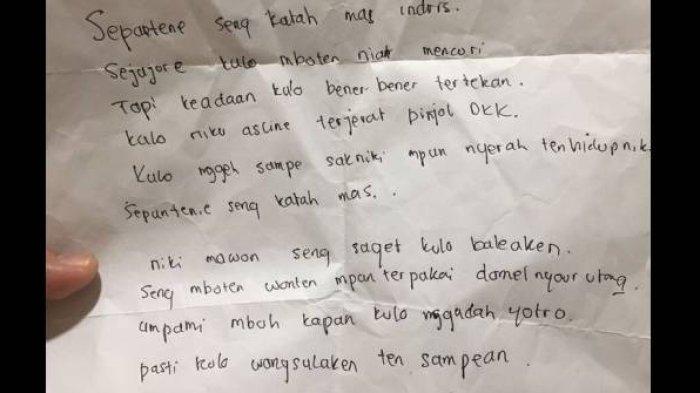 Sepantene seng katah mas indris.
Sejujore kulo mboten niat mencuri
Tapi keadaan kulo bener-bener tertekan.
kulo niku asline terjerat pinjol OKK.
Kulo nggeh sampe sakniki mpun nyerah ten hidup nik.
Sepunten.e seng katah mas..
niki mawon seng saget kulo baleaken.
Seng mboten wonten mpun terpakai damel nyaur utang.
umpami mboh kapan kulo nggadah yotro.
pasti kulo wangsulaken ten sampean.